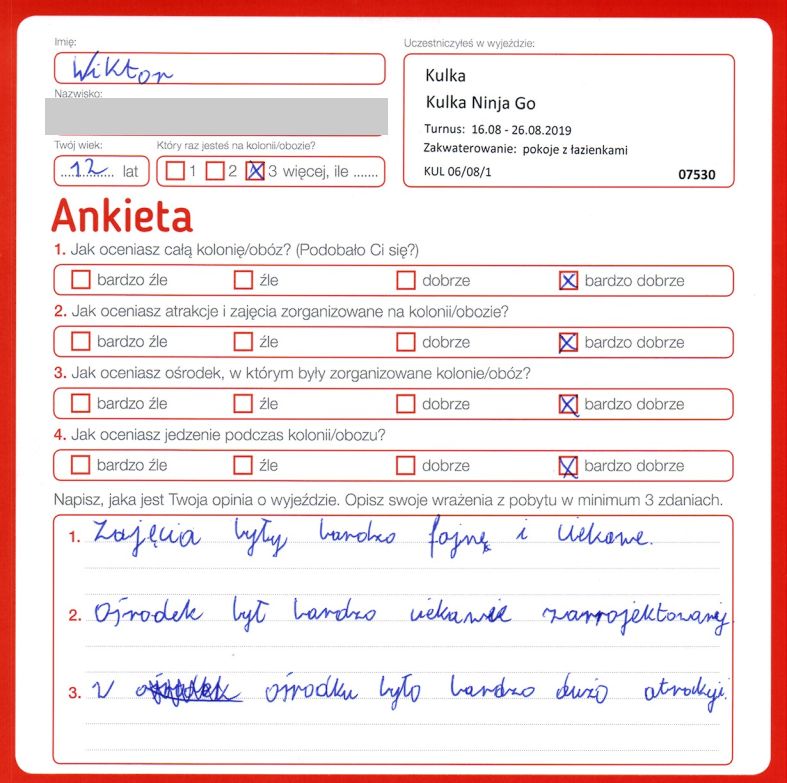 Imię:
Uczestniczyłeś w wyjeździe:
Wiktor
Kulka
Kulka Ninja Go
Turnus: 16.08 - 26.08.2019
Zakwaterowanie: pokoje z łazienkami
KUL 06/08/1 07530
Nazwisko:
Twój wiek:
Który raz jesteś na kolonii/obozie?
12 lat
1 2 3 więcej, ile .......
Ankieta
1. Jak oceniasz całą kolonię/obóz? (Podobało Ci się?)
bardzo źle źle dobrze bardzo dobrze
2. Jak oceniasz atrakcje i zajęcia zorganizowane na kolonii/obozie?
bardzo źle źle dobrze bardzo dobrze
3. Jak oceniasz ośrodek, w którym były zorganizowane kolonie/obóz?
bardzo źle źle dobrze bardzo dobrze
4. Jak oceniasz jedzenie podczas kolonii/obozu?
bardzo źle źle dobrze bardzo dobrze
Napisz, jaka jest Twoja opinia o wyjeździe. Opisz swoje wrażenia z pobytu w minimum 3 zdaniach.
1. Zajęcia były bardzo fajne i ciekawe.
2. Ośrodek był bardzo ciekawie zaprojektowany
3. W ośrodku było bardzo dużo atrakcji.